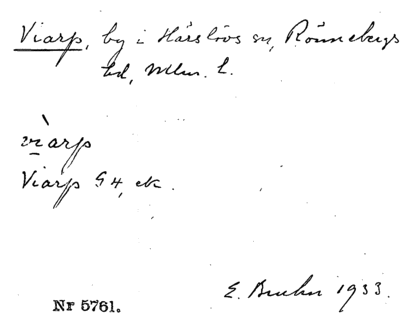 Viarp, by i Härslövs sn, Rönnebergs
hd, Mlm. l.
vìarp
Viarp G4, ek.
E. Bruhn 1933.
Nr 5761.